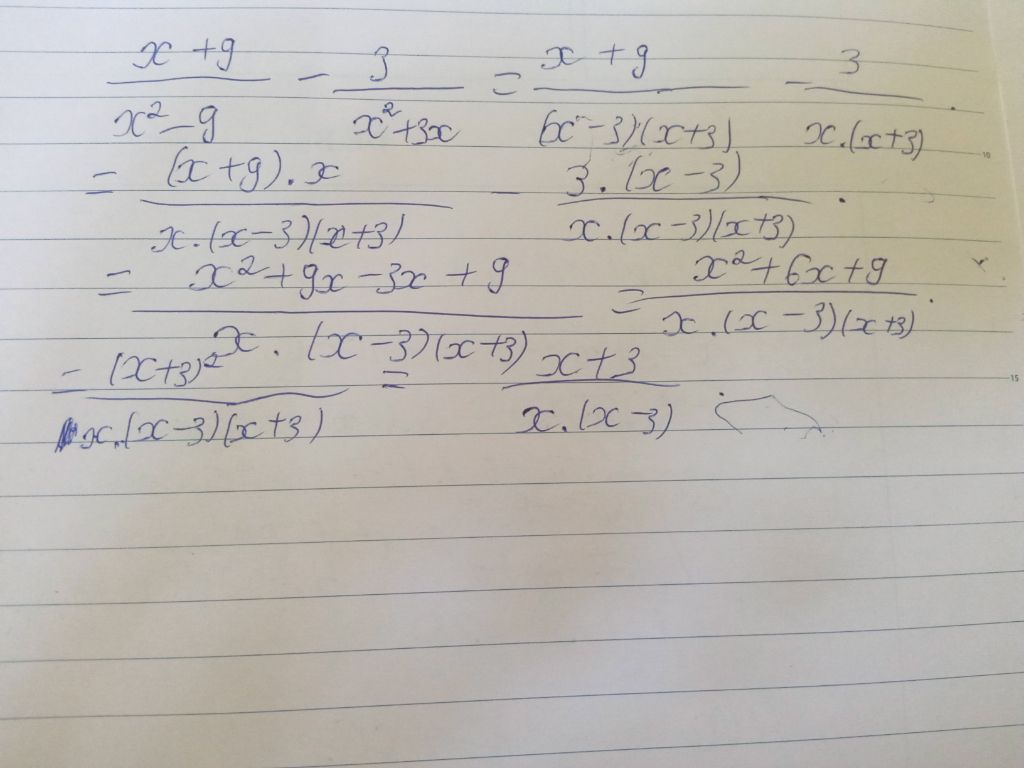 (x + 9)/(x² - 9) - 3/(x² + 3x) = (x + 9)/((x - 3)(x + 3)) - 3/(x.(x + 3)).
= ((x + 9).x)/(x.(x - 3)(x + 3)) - (3.(x - 3))/(x.(x - 3)(x + 3)).
= (x² + 9x - 3x + 9)/(x.(x - 3)(x + 3)) = (x² + 6x + 9)/(x.(x - 3)(x + 3)).
= (x + 3)²/(x.(x - 3)(x + 3)) = (x + 3)/(x.(x - 3))